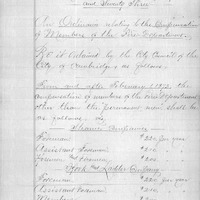 and Seventy Three
An Ordinance relating to the Compensation
of Members of the Fire Department.
BE it ordained by the City Council of the
City of Cambridge, as follows.
From and after February 1, 1873, the
compensation of members of the Fire Department
other than the permanent men shall be
as follows, viz
Steamer Companies
Foreman $225 per year
Assistant Foreman $200.
Hook and Ladder Company
Foreman $225 per year
Assistant Foreman $200.